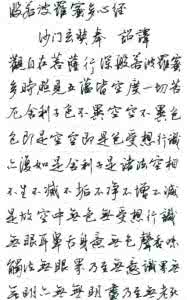 般若波羅蜜多心經
沙門玄奘奉 詔譯
觀自在菩薩行深般若波羅蜜
多時照見五蘊皆空度一切苦
厄舍利子色不異空空不異色
色即是空空即是色受想行識
亦復如是舍利子是諸法空相
不生不滅不垢不淨不增不減
是故空中無色無受想行識
無眼耳鼻舌身意無色聲香味
觸法無眼界乃至無意識界無
無明亦無無明盡乃至無老死